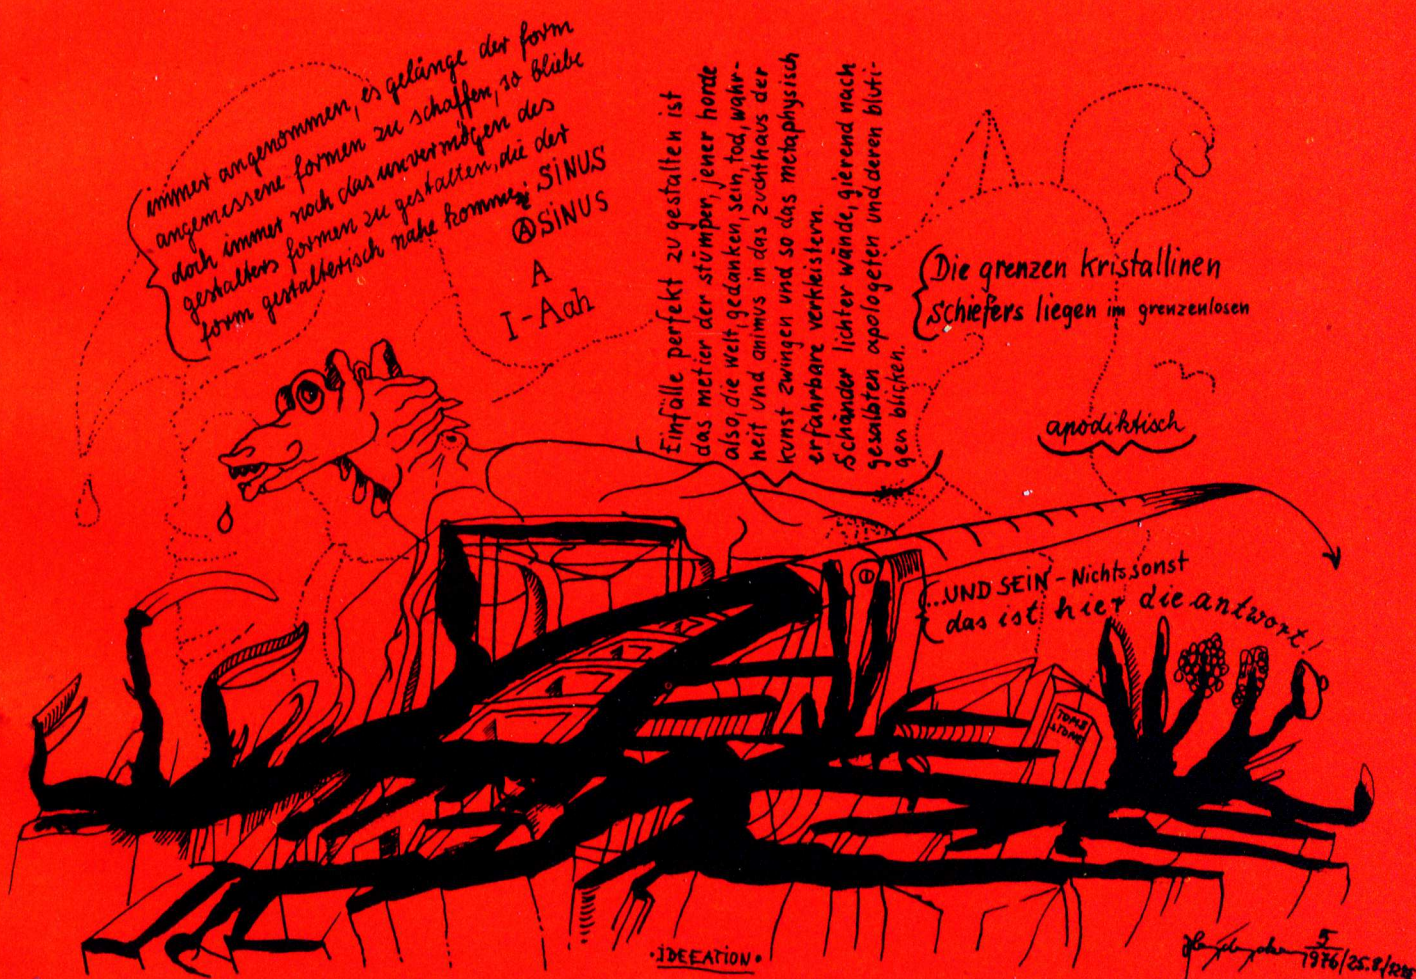 immer angenommen, es gelänge der form
angemessene formen zu schaffen, so bliebe
doch immer noch das unvermögen des
gestalters formen zu gestalten, die der
form gestalterisch nahe kommen: SINUS
ASINUS
A
I-Aah
Einfälle perfekt zu gestalten ist
das metier der stümper, jener horde
also, die welt, gedanken, sein, tod, wahr-
heit und animus in das zuchthaus der
kunst zwingen und so das metaphysisch
erfahrbare verkleistern.
Schänder lichter wände, gierend nach
gesalbten apologeten und deren bluti-
gen blicken.
Die grenzen kristallinen
Schiefers liegen im grenzenlosen
apodiktisch
...UND SEIN - Nichts sonst
das ist hier die antwort!
TOMB
STONE
·IDEEATION·
5
1976/25.8/